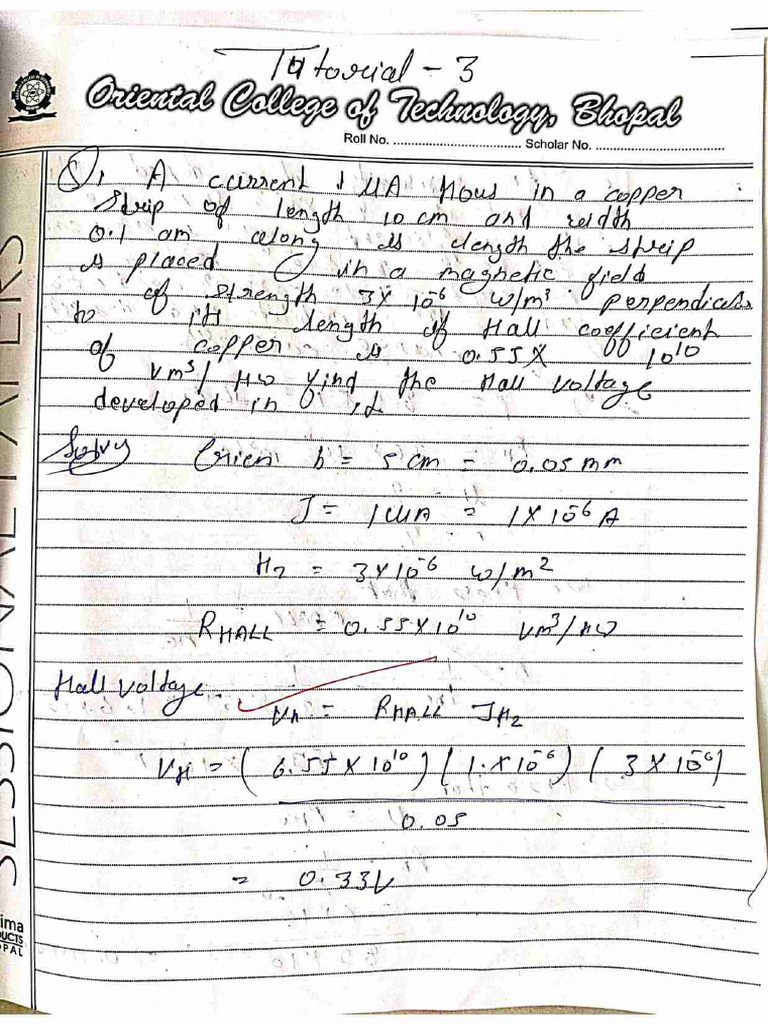 Tutorial - 3
Oriental College of Technology, Bhopal
Roll No. .................................... Scholar No. ....................................
Q. A current 1 MA flows in a copper
strip of length 10 cm and width
0.1 am along is length the strip
is placed in a magnetic field
of strength 3X 10-6 w/m3 perpendicular
to its length if Hall coefficient
of copper is 0.55X 10^10
Vm3/ Aw find the Hall voltage
developed in it
Given b = 5 cm = 0.05 mm
I = 1 MA = 1 X 10-6 A
Hz = 3X10-6 w/m2
RHALL = 0.55X10^10 Vm3/Aw
Hall voltage.
VH = RHALL JHz
VH = ( 6.55 X 10^10 ) ( 1.X10-6 ) ( 3 X 10-6 )
0.05
= 0.33V
SESSIONAL PAPERS
ima
DUCTS
OPAL